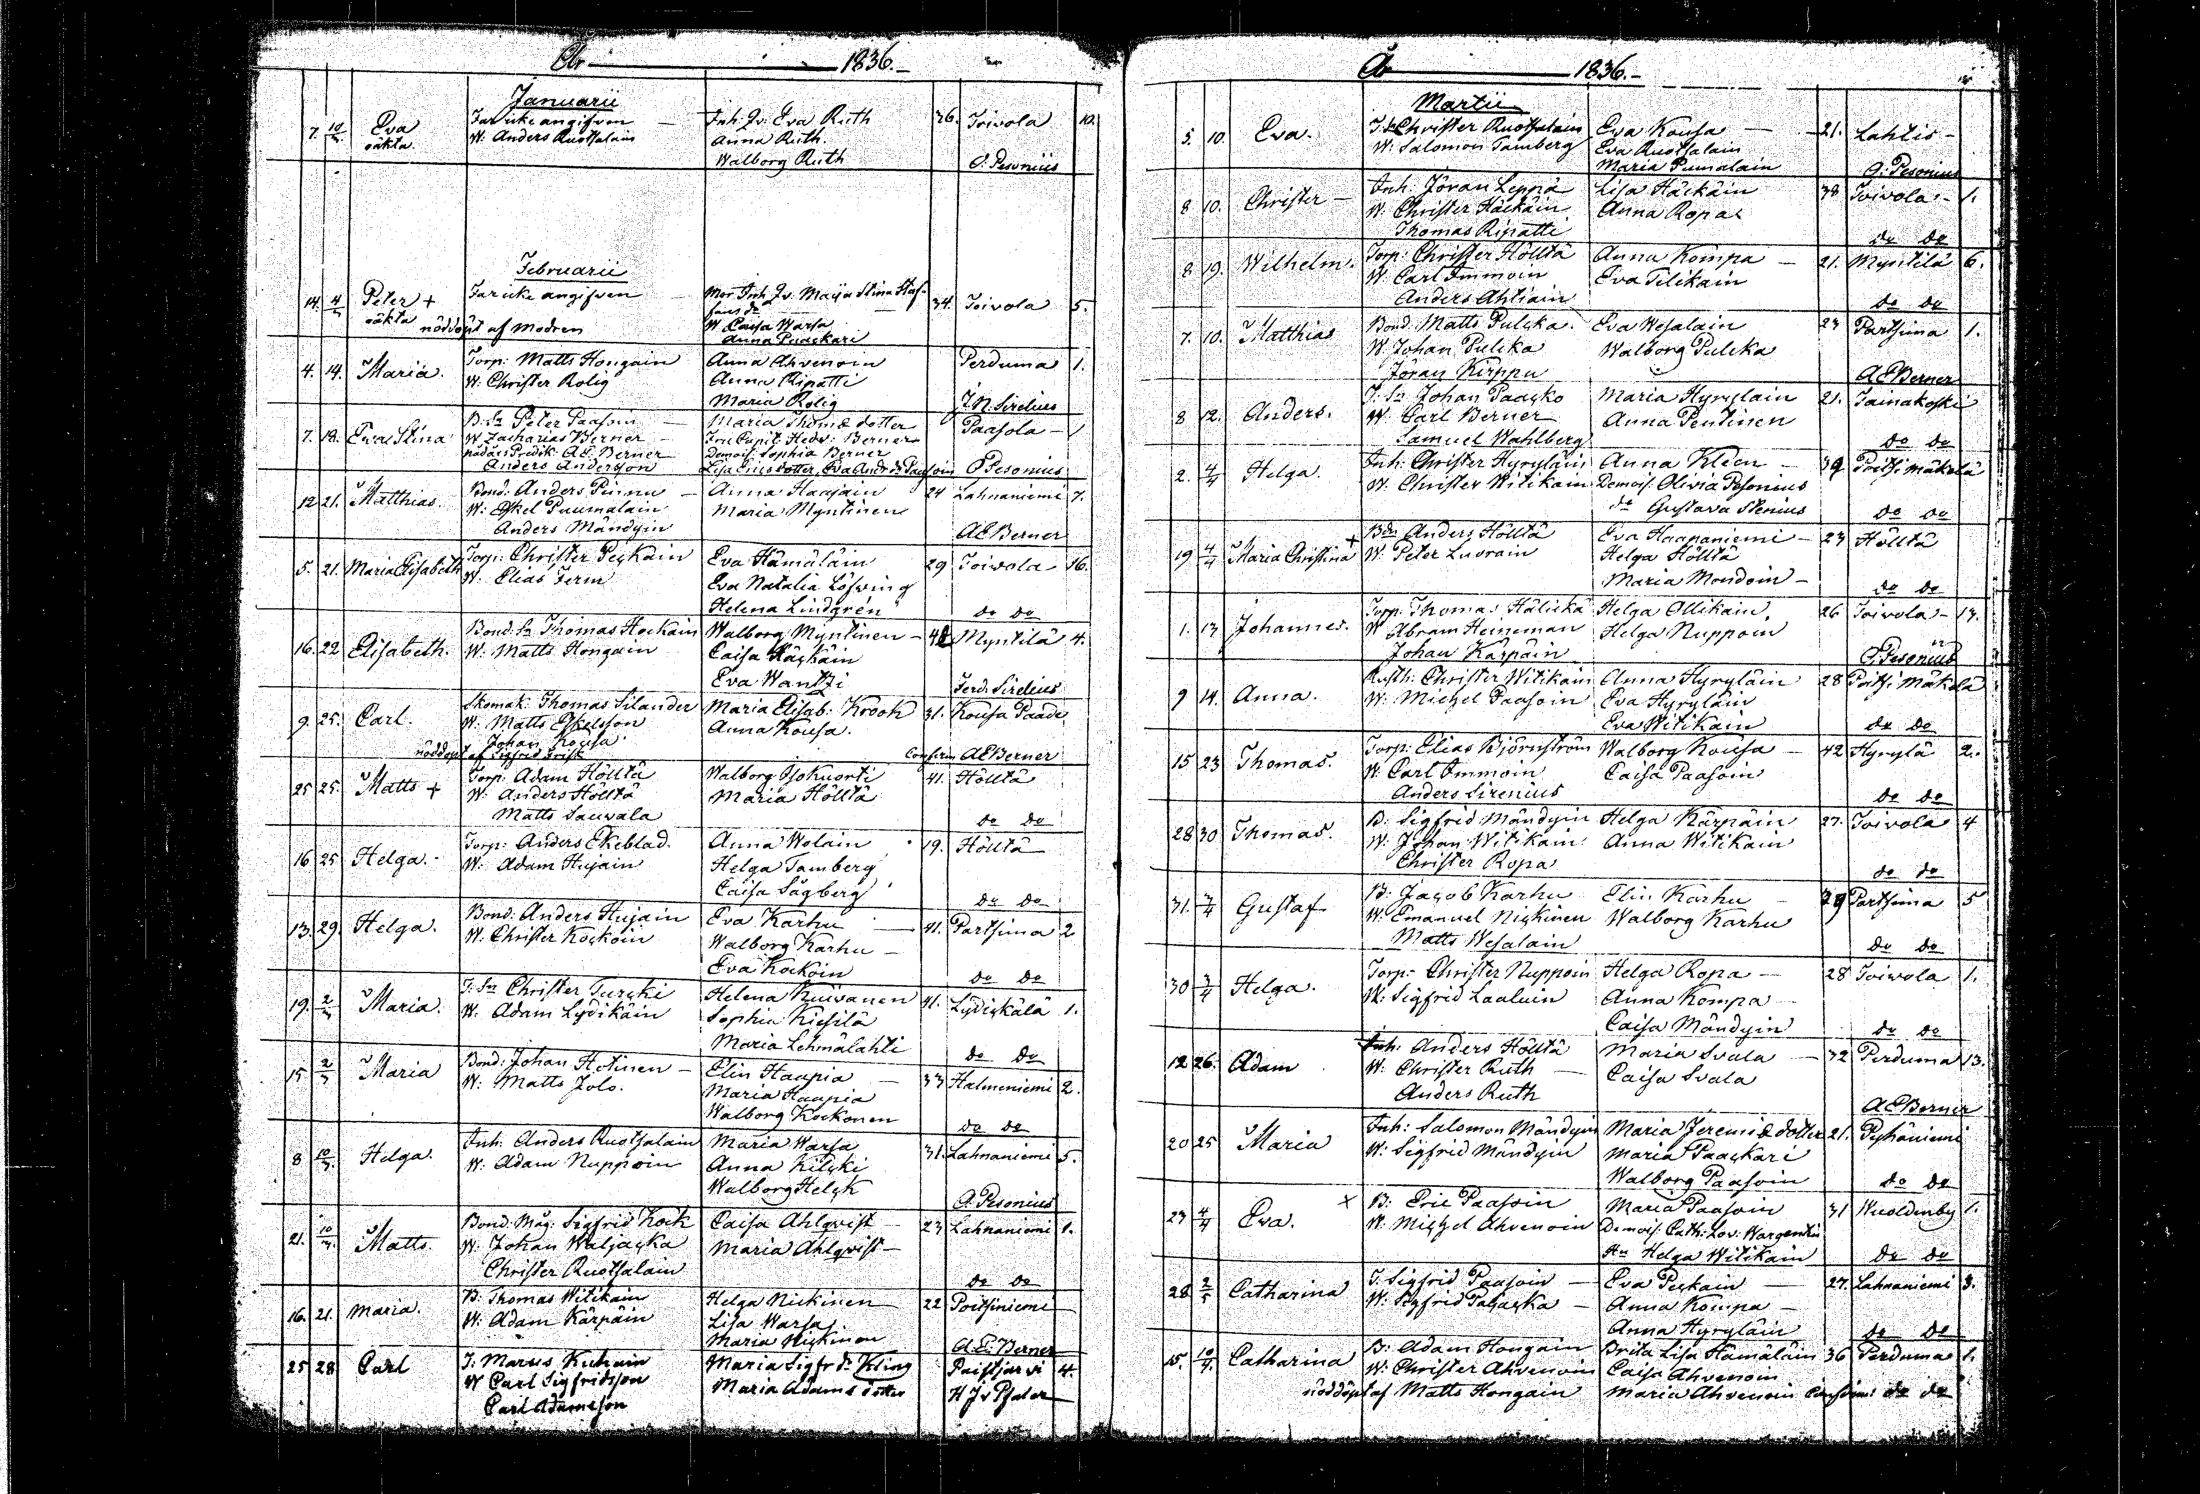 År 1836.
Januarii
7. 10/2 Eva Far icke angifven Inh: Jv: Eva Ruth 36. Toivola 10.
oäkta W. Anders Ruotsalain Anna Ruth.
Walborg Ruth O. Pesonius
Februarii
14. 4/2 Peter + Far icke angifven Mor Inh Jv. Maija Stina Staf- 34. Toivola 5.
oäkta nöddöpt af Modren W Caisa Warsa
Anna Paackari
4. 14. Maria. Torp: Matts Hongain Anna Ahvenoin Perduma 1.
W. Christer Rolig Anna Ripatti
Maria Rolig F. N. Sirelius
7. 18. Eva Stina B. Sn Peter Paasoin Maria Thomæ dotter Paasola 1
W Zacharias Berner Fru Capit: Hedv: Berner
Predik: A E. Berner Demois: Sophia Berner
Anders Anderson O Pesonius
12 21. Matthias. Bond: Anders Pinnu Anna Haajain 24 Lahnaniemi 7.
W: Eskel Puumalain Maria Myntinen
Anders Mändyin A E Berner
5. 21. Maria Elisabeth Torp: Christer Peckäin Eva Hämäläin 29 Toivola 16.
W. Elias Ferm Eva Natalia Löfwing
Helena Lindgrén do do
16. 22 Elisabeth. Bond. Sn Thomas Hockain Walborg Myntinen Myntilä 4.
W. Matts Hongain Caisa Häckäin
Eva Wantzi Ferd. Sirelius
9. 25. Carl. Skomak: Thomas Silander Maria Elisab: Krook 31. Kousa Paade
W. Matts Eskelsson Anna Kousa.
Johan Kousa
nöddöpt af Sigfrid Frisk Confirm A E Berner
25 25. Matts + Torp: Adam Höltta Walborg Isokuorti 41. Hölttä
W. Anders Hölttä Maria Hölttä
Matts Sauvala do do
16 25 Helga. Torp: Anders Ekeblad. Anna Wolain 19. Hölttä
W: Adam Hujain Helga Tamberg
Caisa Sågberg do do
13. 29. Helga. Bond: Anders Hujain Eva Karhu 41. Partsima 2
W. Christer Kockoin Walborg Karhu
Eva Kockoin do do
19. 2/3 Maria. T. Sn Christer Turcki Helena Kuivanen 41. Lydickälä 1.
W. Adam Lydikäin Sophia Kiesilä
Maria Lehmälahti do do
15 2/3 Maria Bond: Johan Hotinen Elin Haapia 33 Halmeniemi 2.
W. Matts Jolo. Maria Haapia
Walborg Kockonen do do
8 10/3 Helga. Inh: Anders Ruotsalain Maria Warsa 31. Lahnaniemi 5.
W. Adam Nuppoin Anna Kilcki
Walborg Helck O. Pesonius
21. 10/3 Matts. Bond: Måg: Sigfrid Kock Caisa Ahlqvist 23 Lahnaniemi 1.
W. Johan Waljacka Maria Ahlqvist
Christer Ruotsalain do do
16. 21. Maria. B: Thomas Witikain Helga Nickinen 22 Poitsiniemi
W. Adam Kärpäin Lisa Warsa.
Maria Nickinen A. E. Berner
25 28 Carl Maria Sigfr.dr Kling Paistjarvi 4.
W Carl Sigfridsson Maria Adams dotter
Carl Adamsson
År 1836.
Martii
5. 10. Eva. Christer Ruotsalain Eva Kousa 21. Lahtis
W: Salomon Tamberg Eva Ruotsalain
Maria Pumalain O. Pesonius
8 10. Christer Inh: Jöran Leppä Lisa Häckäin 38 Toivola 1.
W. Christer Häckäin Anna Ropa
Thomas Ripatti do do
8 19. Wilhelm. Torp: Christer Hölttä Anna Kompa 21. Myntilä 6.
W. Carl Immoin Eva Tilikain
Anders Ahtiain do do
7. 10. Matthias Bond: Matts Pulcka. Eva Wesalain 23 Partsima 1.
W. Johan Pulcka Walborg Pulcka
Jöran Kirppu A E Berner
8 12. Anders. T. Sn Johan Paacko Maria Hyryläin 21. Tainakoski
W. Carl Berner Anna Pentinen
Samuel Wahlberg do do
2. 4/4 Helga. Inh: Christer Hyryläin Anna Kléen 39 Poitsi mäkelä
W. Christer Witikain Demois: Olivia Pesonius
do Gustava Stenius do do
19 4/4 Maria Christina + Bdn Anders Hölttä Eva Haapaniemi 23 Hölttä
W. Peter Luvrain Helga Hölttä
Maria Mondoin do do
1. 13 Johannes. Torp. Thomas Hälickä Helga Ollikain 26 Toivola 13.
W Abram Heineman Helga Nuppoin
Johan Kärpäin O. Pesonius
9 14 Anna. Rusth: Christer Witikain Anna Hyryläin 28 Poitsi Mäkelä
W. Michel Paasoin Eva Hyryläin
Eva Witikain do do
15 23 Thomas. Torp: Elias Björnström Walborg Kousa 42 Hyrylä 2.
W. Carl Immoin Caisa Paasoin
Anders Sirenius do do
28 30 Thomas. B: Sigfrid Mändyin Helga Kärpäin 27. Toivola 4
W. Johan Witikain Anna Witikain
Christer Ropa do do
31. 3/4 Gustaf B: Jacob Karhu Elin Karhu 29 Partsima 5
W. Emanuel Nickinen Walborg Karhu
Matts Wesalain do do
30 3/4 Helga. Torp: Christer Nuppoin Helga Ropa 28 Toivola 1.
W. Sigfrid Laaluin Anna Kompa
Caisa Mändyin do do
12 26. Adam Inh: Anders Hölttä Maria Svala 32 Perduma 13.
W: Christer Ruth Caisa Svala
Anders Ruth A E Berner
20 25 Maria Inh: Salomon Mändyin Maria Jeremiæ dotter 21. Pyhäniemi
W: Sigfrid Mändyin Maria Paackari
Walborg Paasoin do do
23 4/4 Eva. x B: Eric Paasoin Maria Paasoin 31 Wuoldenby 1.
W. Michel Ahvenoin Demois: Cath: Lov: Wargentin
Hu Helga Witikain do do
28 2/5 Catharina T. Sigfrid Paasoin Eva Peckain 27. Lahnaniemi 3.
W: Sigfrid Paljacka Anna Kompa
Anna Hyryläin do do
15. 10/4 Catharina B: Adam Hongain Brita Lisa Hämäläin 36 Perduma 1.
W: Christer Ahvenoin Caisa Ahvenoin
nöddöpt af Matts Hongain Maria Ahvenoin Confirm: do do